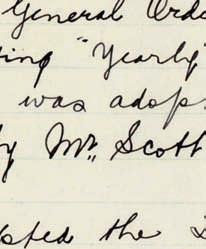 General Orde
ting "Yearly"
was adop
by Mr. Scott
pted the